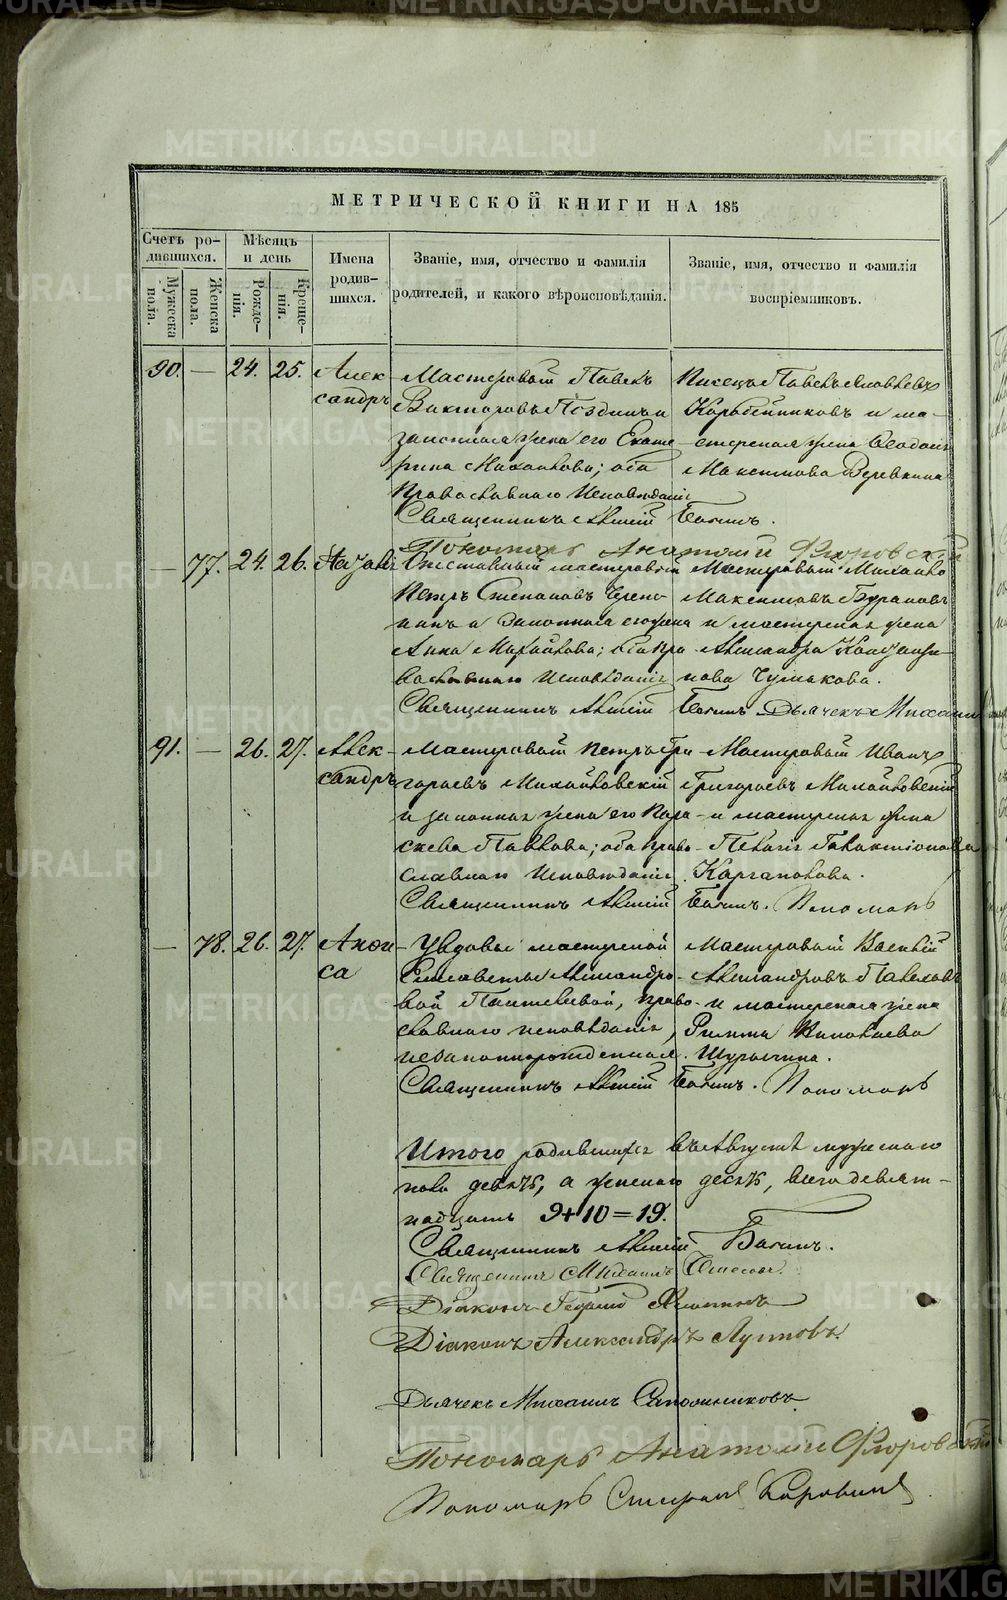 METRIKI.GASO-URAL.RU
МЕТРИЧЕСКОЙ КНИГИ НА 185
Счетъ ро-
дившихся.
Мужеска пола.
Женска пола.
Мѣсяцъ и день
Рожде-
нія.
Креще-
нія.
Имена
родив-
шихся.
Званіе, имя, отчество и фамилія
родителей, и какого вѣроисповѣданія.
Званіе, имя, отчество и фамилія
воспріемниковъ.
90. — 24. 25. Алек
сандръ
Мастеровый Павелъ
Викторовъ Поздинъ и
законная жена его Екате
рина Михайлова; оба
Православнаго Исповѣданія
Писецъ Павелъ Яковлевъ
Коробейниковъ и ма-
стерская жена Ѳеодосія
Максимова Веревкина
Священникъ Алексій
Пономарь Анатолій Флоровскій
— 77. 24. 26.
мастеровый
Петръ Степановъ
и законная его жена
Анна Михайлова; оба пра
вославнаго исповѣданія
Мастеровый Михайло
Максимовъ Бурановъ
и мастерская жена
Александра
Чулакова.
Священникъ Алексій Дьячекъ Михаилъ
91. — 26. 27. Алек-
сандръ
Мастеровый Петръ Гри
горьевъ Михайловскій
и законная жена его Пара-
скева Павлова; оба право-
славнаго исповѣданія
Мастеровый Иванъ
Григорьевъ Михайловскій
и мастерская жена
Пелагія Галактіонова
Каргаполова.
Священникъ Алексій Пономарь
— 78. 26. 27. Анѳи
са
У вдовы мастерской
Елисаветы Александро-
вой Пантелеевой, право-
славнаго исповѣданія,
незаконнорожденная.
Мастеровый Василій
Александровъ
и мастерская жена
Римма Николаева
Священникъ Алексій Пономарь
Итого родившихся въ Августѣ мужескаго
пола девять, а женскаго десять, всего девят-
надцать 9+10=19.
Священникъ Алексій
Священникъ Михаилъ
Діаконъ Георгій
Діаконъ Александръ Луговъ
Дьячекъ Михаилъ Сапожниковъ
Пономарь Анатолій Флоровскій
Пономарь Стефанъ Коровинъ